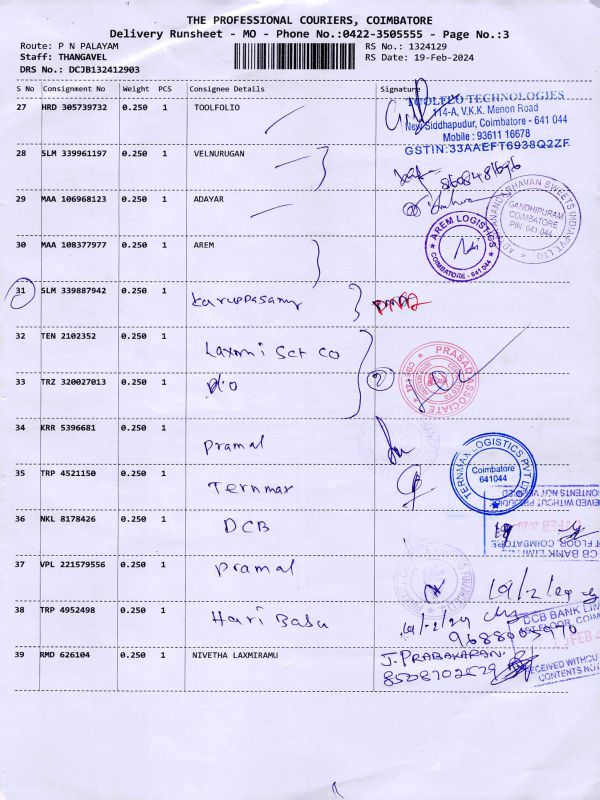 THE PROFESSIONAL COURIERS, COIMBATORE
Delivery Runsheet - MO - Phone No.:0422-3505555 - Page No.:3
Route: P N PALAYAM
RS No.: 1324129
Staff: THANGAVEL
RS Date: 19-Feb-2024
DRS No.: DCJB132412903
S No Consignment No Weight PCS Consignee Details Signature
27 HRD 305739732 0.250 1 TOOLFOLIO
TOOLFLO TECHNOLOGIES
114-A, V.K.K. Menon Road
New Siddhapudur, Coimbatore - 641 044
Mobile : 93611 16678
GSTIN:33AAEFT6938Q2ZF
28 SLM 339961197 0.250 1 VELNURUGAN
8608481696
29 MAA 106968123 0.250 1 ADAYAR
GANDHIPURAM
COIMBATORE
PIN: 641 044
30 MAA 108377977 0.250 1 AREM
AREM LOGISTICS
COIMBATORE - 641 044
31 SLM 339887942 0.250 1 Karuppasamy
32 TEN 2102352 0.250 1 Laxmi Set Co
PRASAD ASSOCIATE
33 TRZ 320027013 0.250 1 D/O
2
34 KRR 5396681 0.250 1 Pramal
35 TRP 4521150 0.250 1 Ternmax
TERNMAX LOGISTICS PVT LTD
Coimbatore
641044
36 NKL 8178426 0.250 1 DCB
37 VPL 221579556 0.250 1 Pramal
19/2/24
38 TRP 4952498 0.250 1 Hari Babu
19/2/24
DCB BANK LIM
39 RMD 626104 0.250 1 NIVETHA LAXMIRAMU
J. PRABAKARAN
8508702529
RECEIVED WITHOUT
CONTENTS NOT